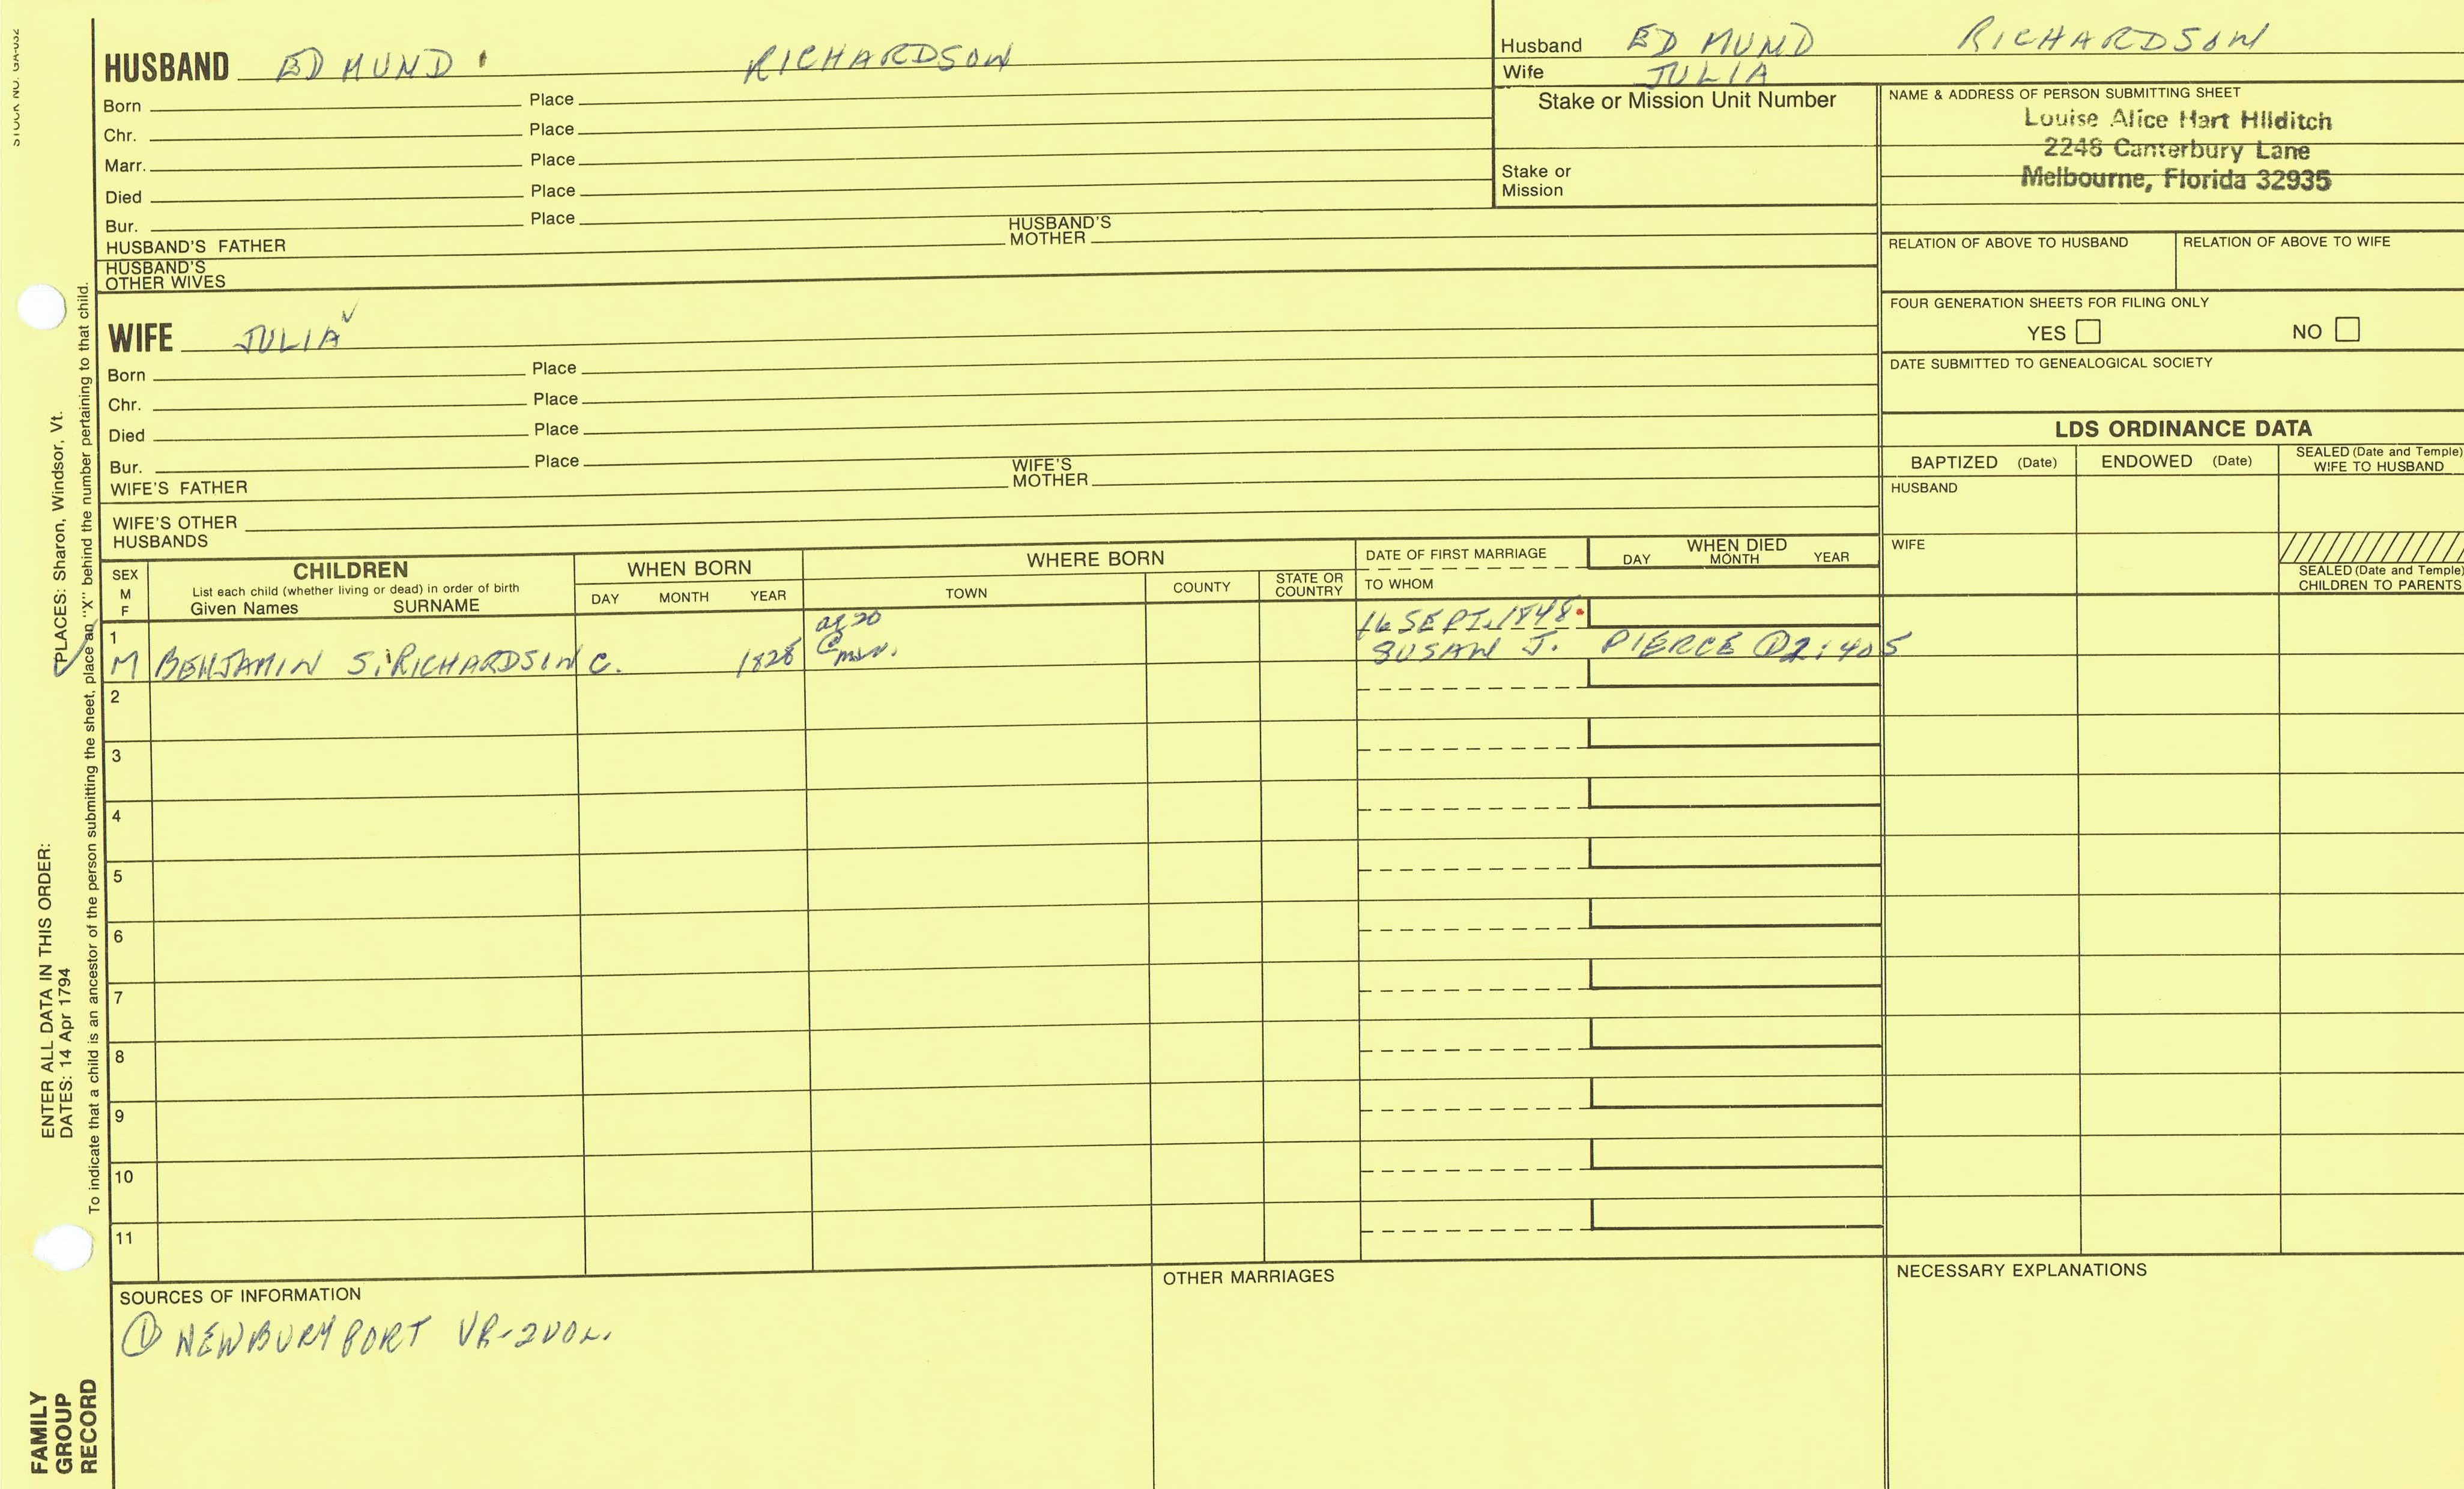 STOCK NO. GA-032
HUSBAND EDMUND RICHARDSON
Born Place
Chr. Place
Marr. Place
Died Place
Bur. Place
HUSBAND'S FATHER HUSBAND'S MOTHER
HUSBAND'S OTHER WIVES
WIFE JULIA
Born Place
Chr. Place
Died Place
Bur. Place
WIFE'S FATHER WIFE'S MOTHER
WIFE'S OTHER HUSBANDS
Husband EDMUND RICHARDSON
Wife JULIA
Stake or Mission Unit Number
Stake or Mission
NAME & ADDRESS OF PERSON SUBMITTING SHEET
Louise Alice Hart Hilditch
2248 Canterbury Lane
Melbourne, Florida 32935
RELATION OF ABOVE TO HUSBAND RELATION OF ABOVE TO WIFE
FOUR GENERATION SHEETS FOR FILING ONLY
YES NO
DATE SUBMITTED TO GENEALOGICAL SOCIETY
LDS ORDINANCE DATA
BAPTIZED (Date) ENDOWED (Date) SEALED (Date and Temple) WIFE TO HUSBAND
HUSBAND
WIFE
SEALED (Date and Temple) CHILDREN TO PARENTS
SEX M F
CHILDREN
List each child (whether living or dead) in order of birth
Given Names SURNAME
WHEN BORN
DAY MONTH YEAR
WHERE BORN
TOWN COUNTY STATE OR COUNTRY
DATE OF FIRST MARRIAGE
TO WHOM
WHEN DIED
DAY MONTH YEAR
1 ag 20 16 SEPT. 1848
M BENJAMIN S. RICHARDSON C. 1828 @ mar. SUSAN J. PIERCE ① 2:405
2
3
4
5
6
7
8
9
10
11
SOURCES OF INFORMATION
① NEWBURYPORT VR-2VOL.
OTHER MARRIAGES
NECESSARY EXPLANATIONS
ENTER ALL DATA IN THIS ORDER:
DATES: 14 Apr 1794 PLACES: Sharon, Windsor, Vt.
To indicate that a child is an ancestor of the person submitting the sheet, place an "X" behind the number pertaining to that child.
FAMILY
GROUP
RECORD